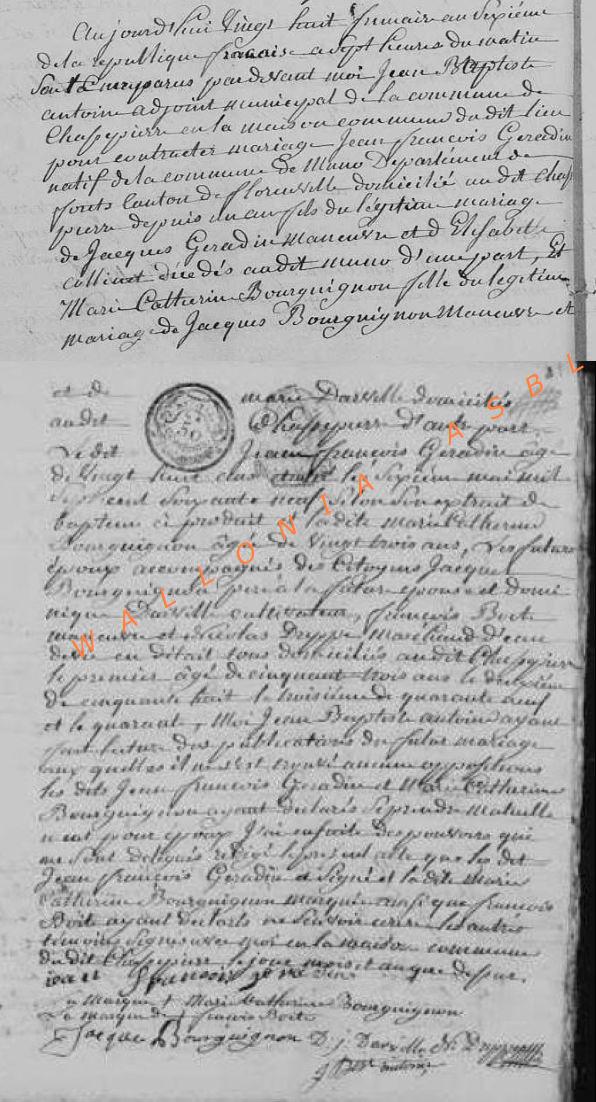 Aujourdhui Vingt huit frimaire an Sixiéme
de la republique francaise a Sept heures du matin
Sont Comparus pardevant moi Jean Baptiste
antoine adjoint municipal de la commune de
Chassepierre en la maison commune du dit lieu
pour contracter mariage Jean francois Geradin
natif de la commune de Muno Departement de
forets Canton de florenville domicilié au dit Chasse
pierre depuis un an fils du légitime mariage
de Jacques Geradin Manœuvre et d Elisabeth
collinet décédés audit muno d'une part, Et
Marie Catherine Bourguignon fille du legitime
mariage de Jacques Bourguignon Manœuvre et
et de marie Darville domiciliés
audit Chassepierre d'autre part
Le dit Jean francois Geradin âgé
de Vingt huit ans le Sixiéme mai mil
Sept cent Soixante neuf Selon Son extrait de
bapteme ci produit la dite marie Catherine
Bourguignon âgée de Vingt trois ans, Les futurs
époux accompagnés des Citoyens Jacques
Bourguignon pere a la future epouse et domi
nique Darville cultivateur, francois Boite
manœuvre et Nicolas Marchand d'eau
de vie en détail tous domiciliés audit Chassepierre
le premier âgé de cinquante trois ans le deuxiéme
de cinquante huit le troisiéme de quarante neuf
et le quarant, Moi Jean Baptiste antoine ayant
fait lecture des publications du futur mariage
aux quelles il ne s'est trouvé aucune oppositions
les dits Jean francois Geradin et Marie Catherine
Bourguignon ayant déclarés Se prendre mutuelle
ment pour epoux J'ai ensuite des pouvoirs qui
me Sont délegués rédigé le présent acte que les dit
Jean francois Geradin a Signé et la dite Marie
Catherine Bourguignon marqué ainsi que francois
Boite ayant declarés ne Scavoir ecrire les autres
temoins Signes avec moi en la maison commune
du dit Chassepierre le jour mois et an que dessus
jean francois geradin
La marque + Marie Catherine Bourguignon
La marque de + francois Boite
Jacque Bourguignon D. j. Darville N:
J Bte antoine
WALLONIA ASBL